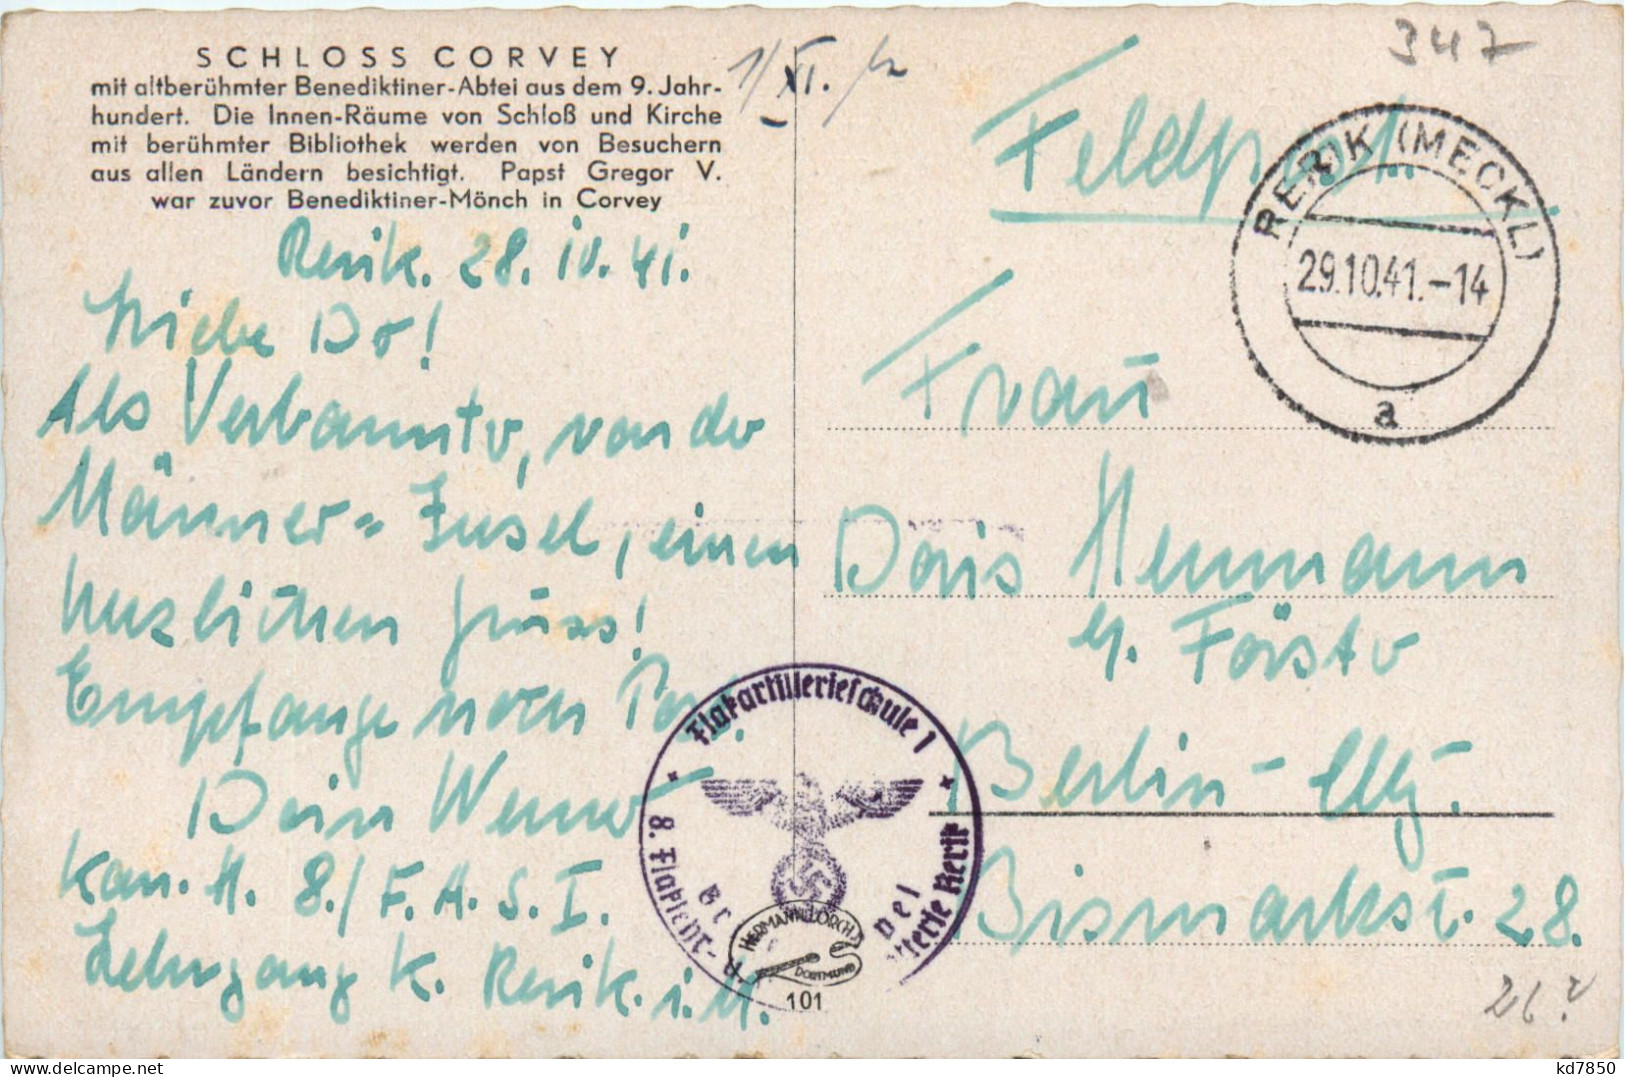 SCHLOSS CORVEY
mit altberühmter Benediktiner-Abtei aus dem 9. Jahr-
hundert. Die Innen-Räume von Schloß und Kirche
mit berühmter Bibliothek werden von Besuchern
aus allen Ländern besichtigt. Papst Gregor V.
war zuvor Benediktiner-Mönch in Corvey
1/XI.
347
Rerik. 28. IV. 41.
Liebe Do!
Als Verbannter, von der
Männer=Insel, einen
herzlichen Gruss!
Empfange noch Post.
Dein Werner
Kan. H. 8./F.A.S.I.
Lehrgang K. Rerik. i.M.
Feldpost.
RERIK (MECKL)
29.10.41.-14
a
Frau
Doris Hermann
b. Förster
Berlin-
Bismarckst. 28.
Flakartillerieschule 1
8. Flaklehr-
Batterie Rerik
HERMANN LORCH
DORTMUND
101
26?
kd7850